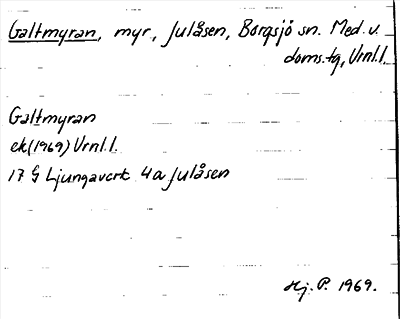 Galtmyran, myr, Julåsen, Borgsjö sn. Med. v.
doms.tg, Vrnl.l.
Galtmyran
ek(1969) Vrnl.l.
17 G Ljungaverk 4a Julåsen
Hj. P. 1969.